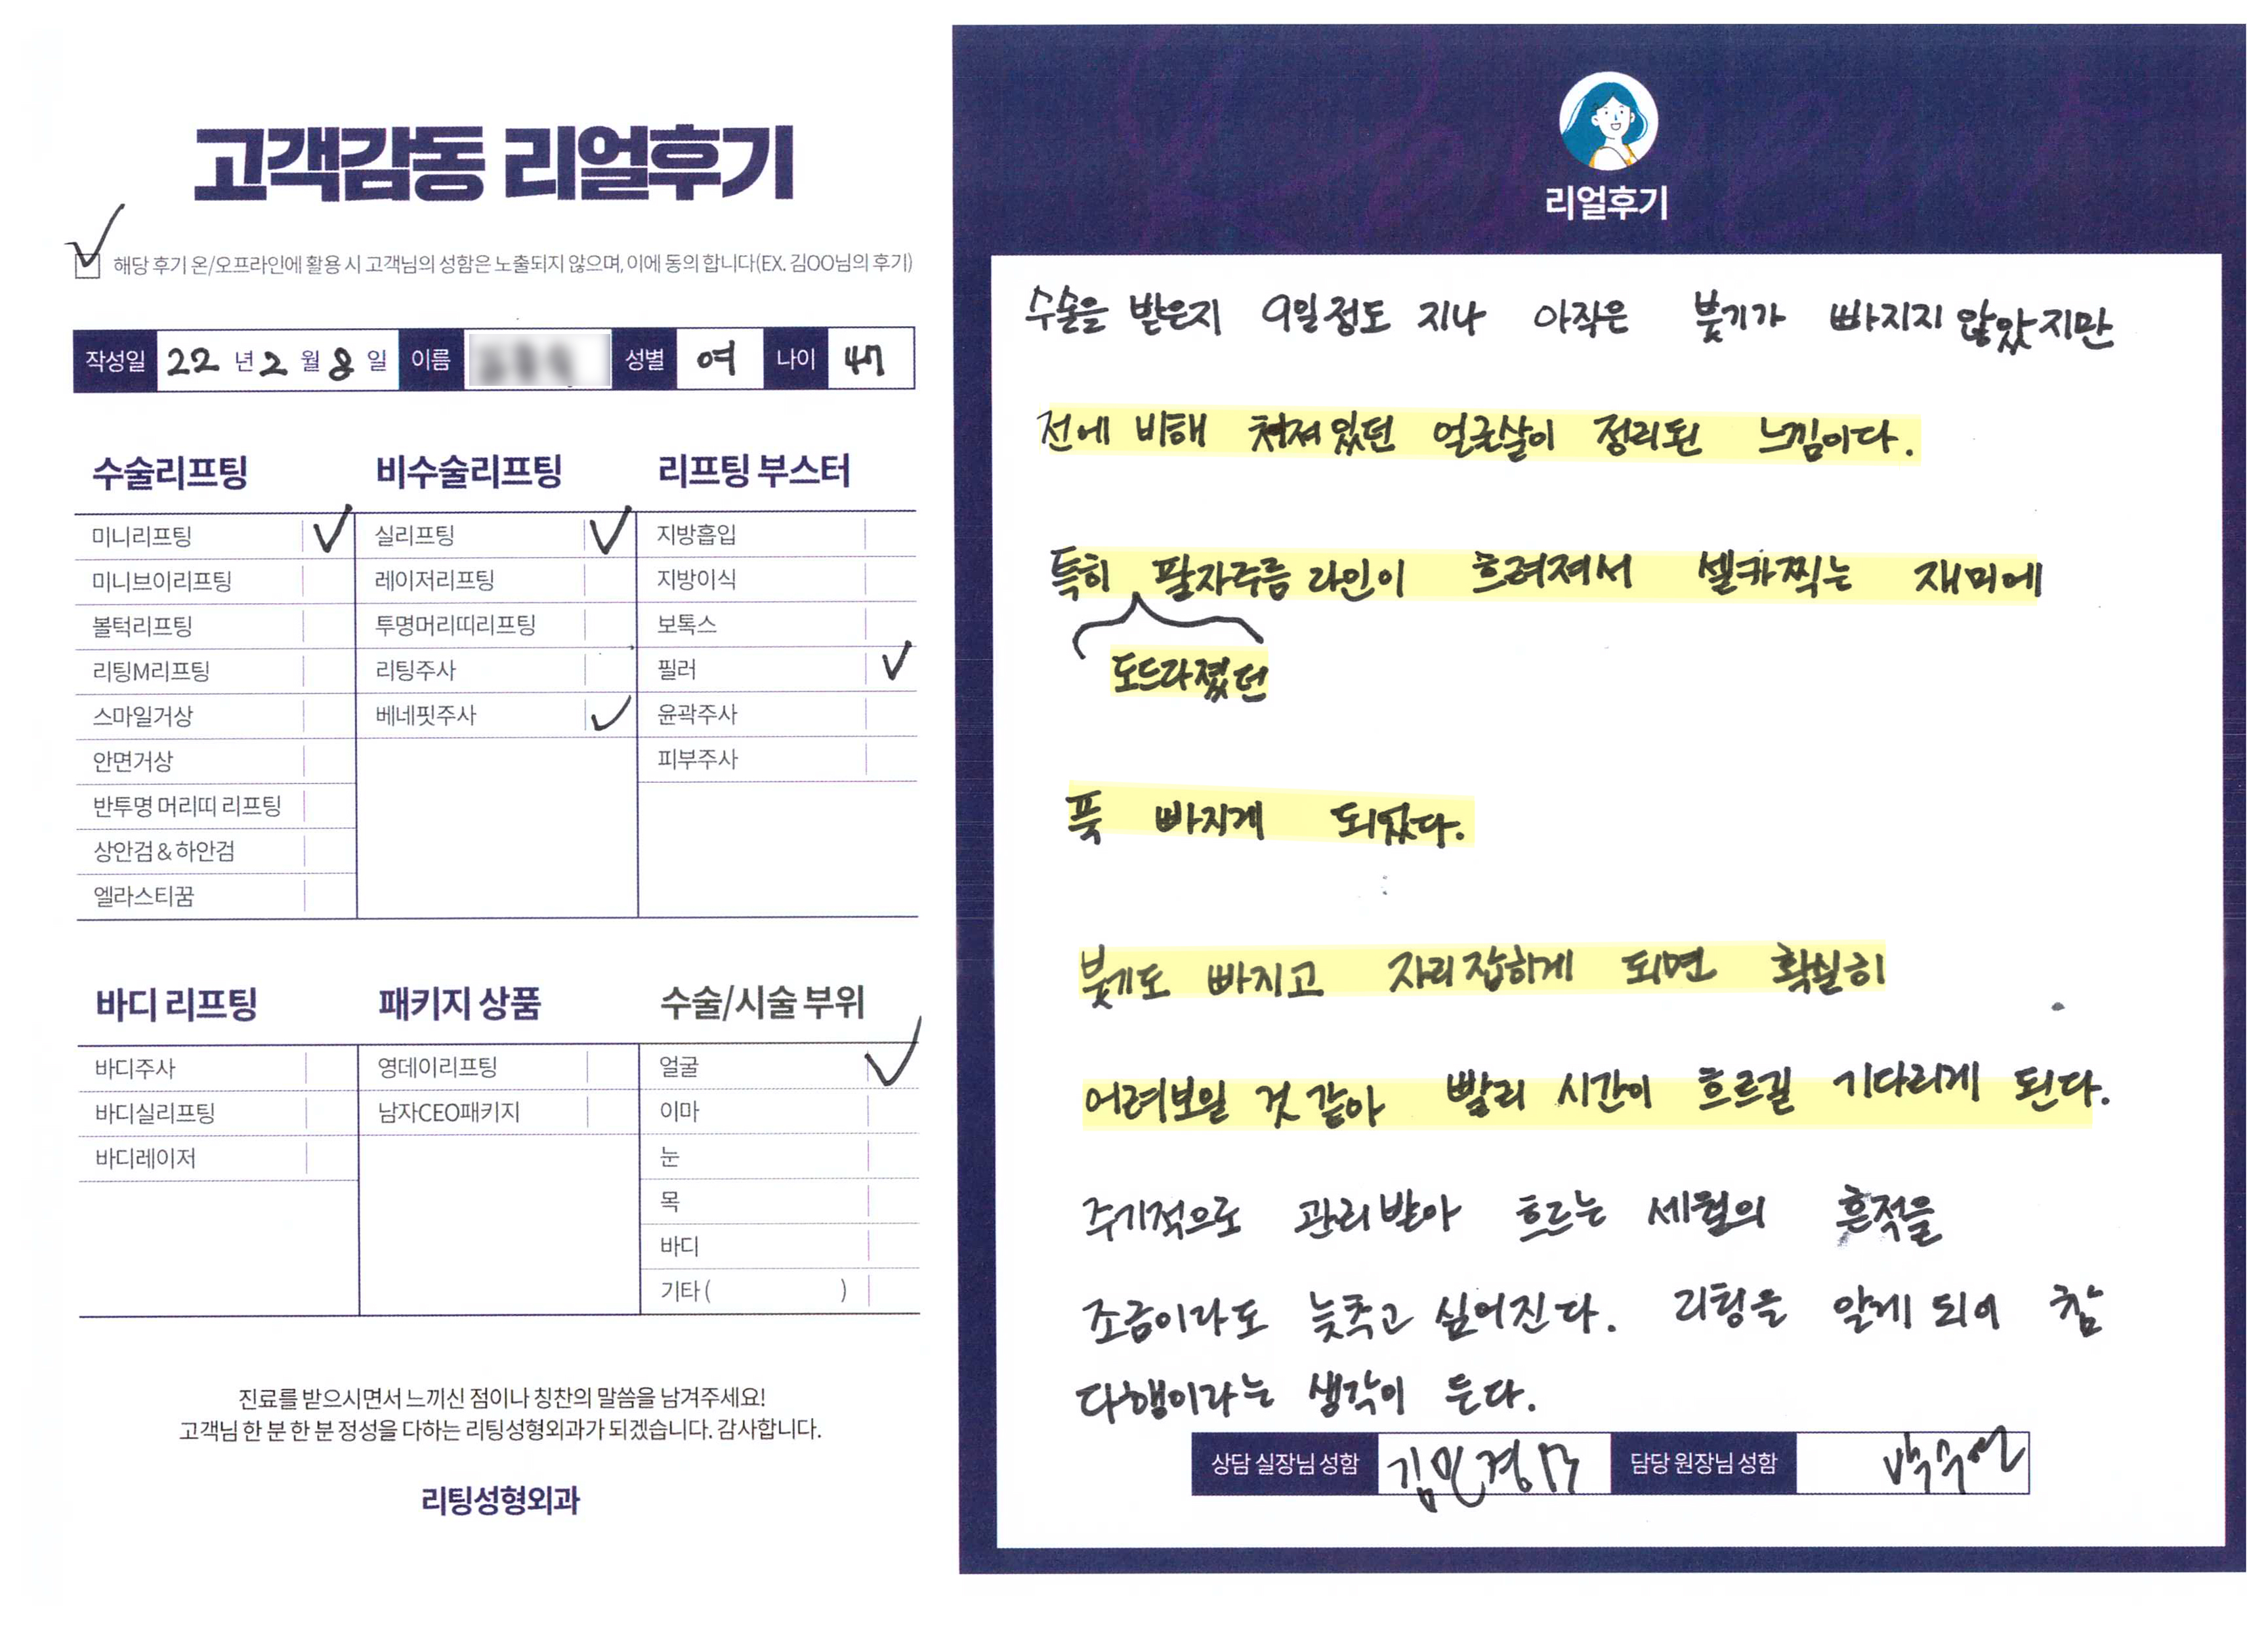 고객감동 리얼후기
해당 후기 온/오프라인에 활용 시 고객님의 성함은 노출되지 않으며, 이에 동의 합니다(EX. 김OO님의 후기)
작성일 22 년 2 월 8 일 이름 성별 여 나이 47
수술리프팅
미니리프팅
미니브이리프팅
볼턱리프팅
리팅M리프팅
스마일거상
안면거상
반투명 머리띠 리프팅
상안검 & 하안검
엘라스티꿈
비수술리프팅
실리프팅
레이저리프팅
투명머리띠리프팅
리팅주사
베네핏주사
리프팅 부스터
지방흡입
지방이식
보톡스
필러
윤곽주사
피부주사
바디 리프팅
바디주사
바디실리프팅
바디레이저
패키지 상품
영데이리프팅
남자CEO패키지
수술/시술 부위
얼굴
이마
눈
목
바디
기타 ( )
진료를 받으시면서 느끼신 점이나 칭찬의 말씀을 남겨주세요!
고객님 한 분 한 분 정성을 다하는 리팅성형외과가 되겠습니다. 감사합니다.
리팅성형외과
리얼후기
수술을 받은지 9일정도 지나 아직은 붓기가 빠지지 않았지만
전에 비해 쳐져있던 얼굴살이 정리된 느낌이다.
특히 팔자주름 라인이 흐려져서 셀카찍는 재미에
도드라졌던
푹 빠지게 되었다.
붓기도 빠지고 자리잡히게 되면 확실히
어려보일 것 같아 빨리 시간이 흐르길 기다리게 된다.
주기적으로 관리받아 흐르는 세월의 흔적을
조금이라도 늦추고 싶어진다. 리팅을 알게 되어 참
다행이라는 생각이 든다.
상담 실장님 성함 김민경 담당 원장님 성함